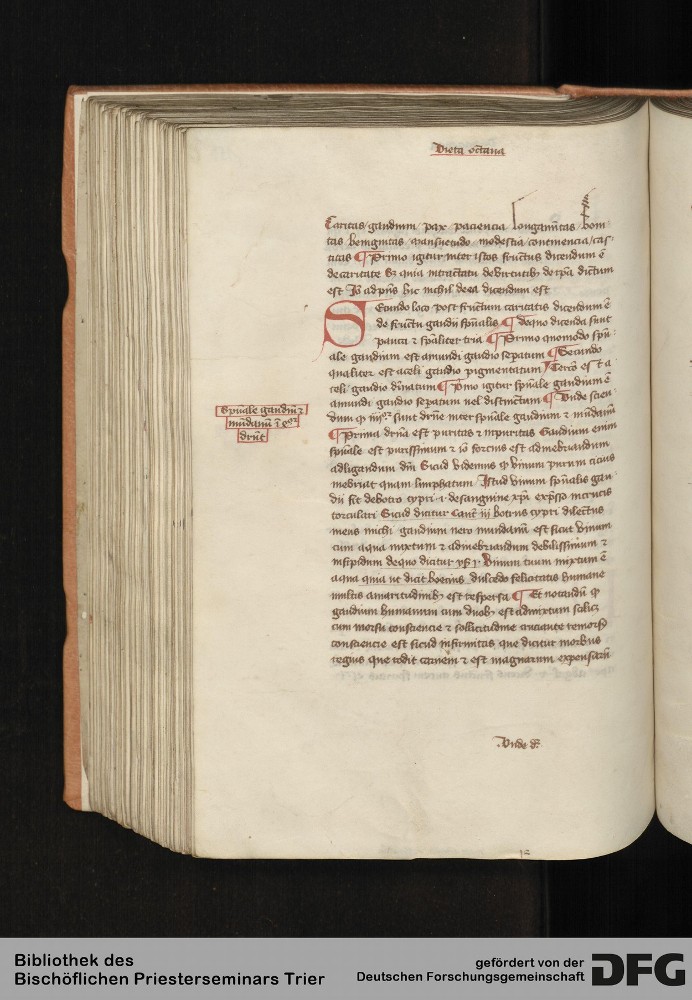 Dieta octaua
Caritas gaudium pax paciencia longanimitas boni
tas benignitas mansuetudo modestia continencia cas
titas Primo igitur inter istos fructus dicendum ē
de caritate sz quia in tractatu de virtutibus de ipa dictum
est Jō ad pn̄s hic nichil de ea dicendum est
Secundo loco post fructum caritatis dicendum ē
de fructu gaudii spūalis De quo dicenda sunt
pauca et spāliter tria Primo quomodo spūu
ale gaudium est a mundi gaudio sepatum Secundo
qualiter est a celi gaudio pigmentatum Tercō est a
celi gaudio diuiatum Pmo igitur spūale gaudium ē
a mundi gaudio sepatum uel distinctum Vnde scien
dum ꝙ iiiior sunt drīne inter spūale gaudium et mūdanū
Spūale gaudiū et
mūdanū ī
drūt
Prima drīa est puritas et inpuritas Gaudium enim
spūale est purissimum et iō forcius est ad inebriandum
ad ligandum dīn Sicud videmus ꝙ vinum purum cicius
inebriat quam limphatum Istud vinum spūalis gau
dii fit de botro cypri et de sanguine xpi expsso in crucis
torculari Sicud dicitur Canc̄ iij botrus cypri dilectus
meus michi gaudium uero mundanū est sicut vinum
cum aqua mixtum et ad inebriandum debilissimum et
insipidum de quo dicitur ys j Vinum tuum mixtum ē
aqua quia ut dicit boecius dulcedo felicitatis humane
multis amaritudinib est respersa Et notandū ꝙ
gaudium humanum cum duob est admixtum silicz
cum morsu consciencie et sollicitudine cruciante remorsꝰ
consciencie est sicud infirmitas que dicitur morbus
regius que rodit carnem et est magnarum expensarū
Vnde dr
Bibliothek des
Bischöflichen Priesterseminars Trier
gefördert von der
Deutschen Forschungsgemeinschaft
DFG